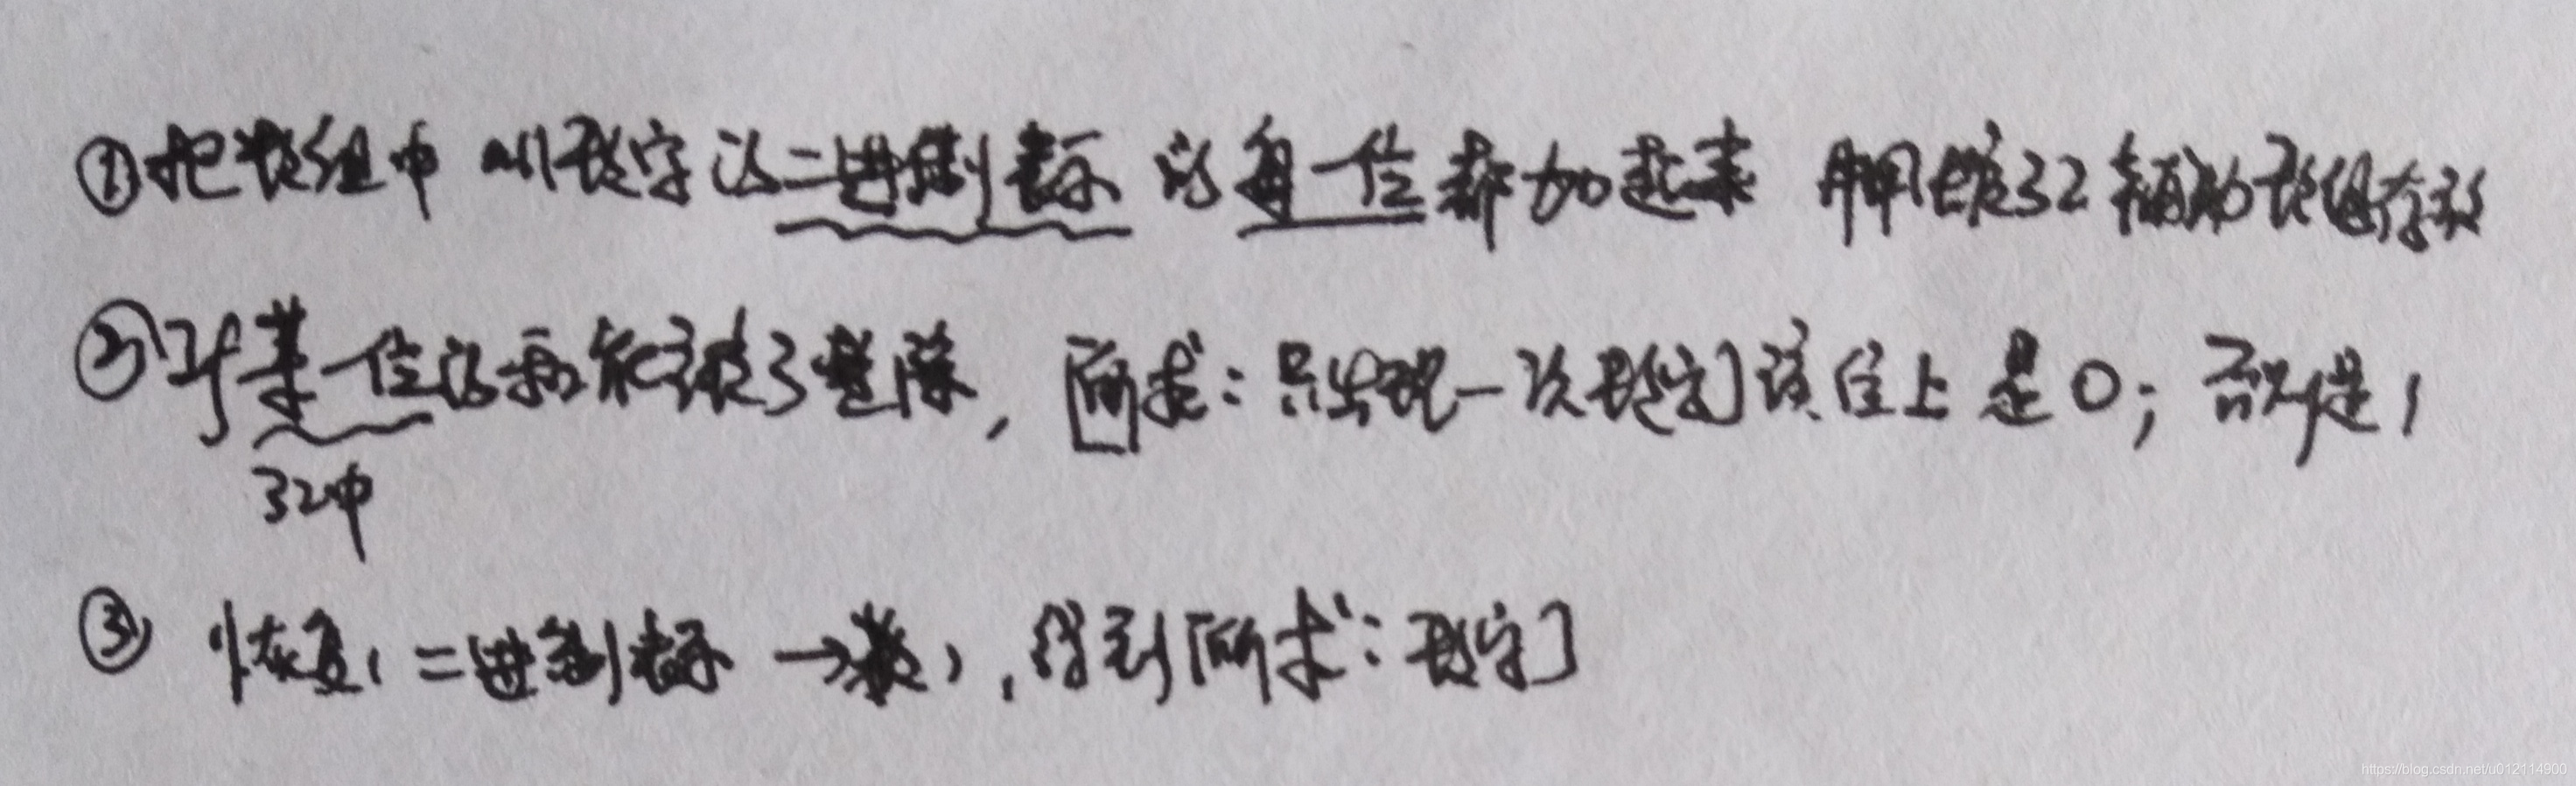 ①把数组中 所有数字的二进制表示 的每一位都加起来 用长度32辅助数组存放
②对某一位的和能被3整除，[所求：只出现一次数字]该位上是0；否则是1
32中
③ 恢复 二进制表示→数，得到[所求：数字]
https://blog.csdn.net/u012114900